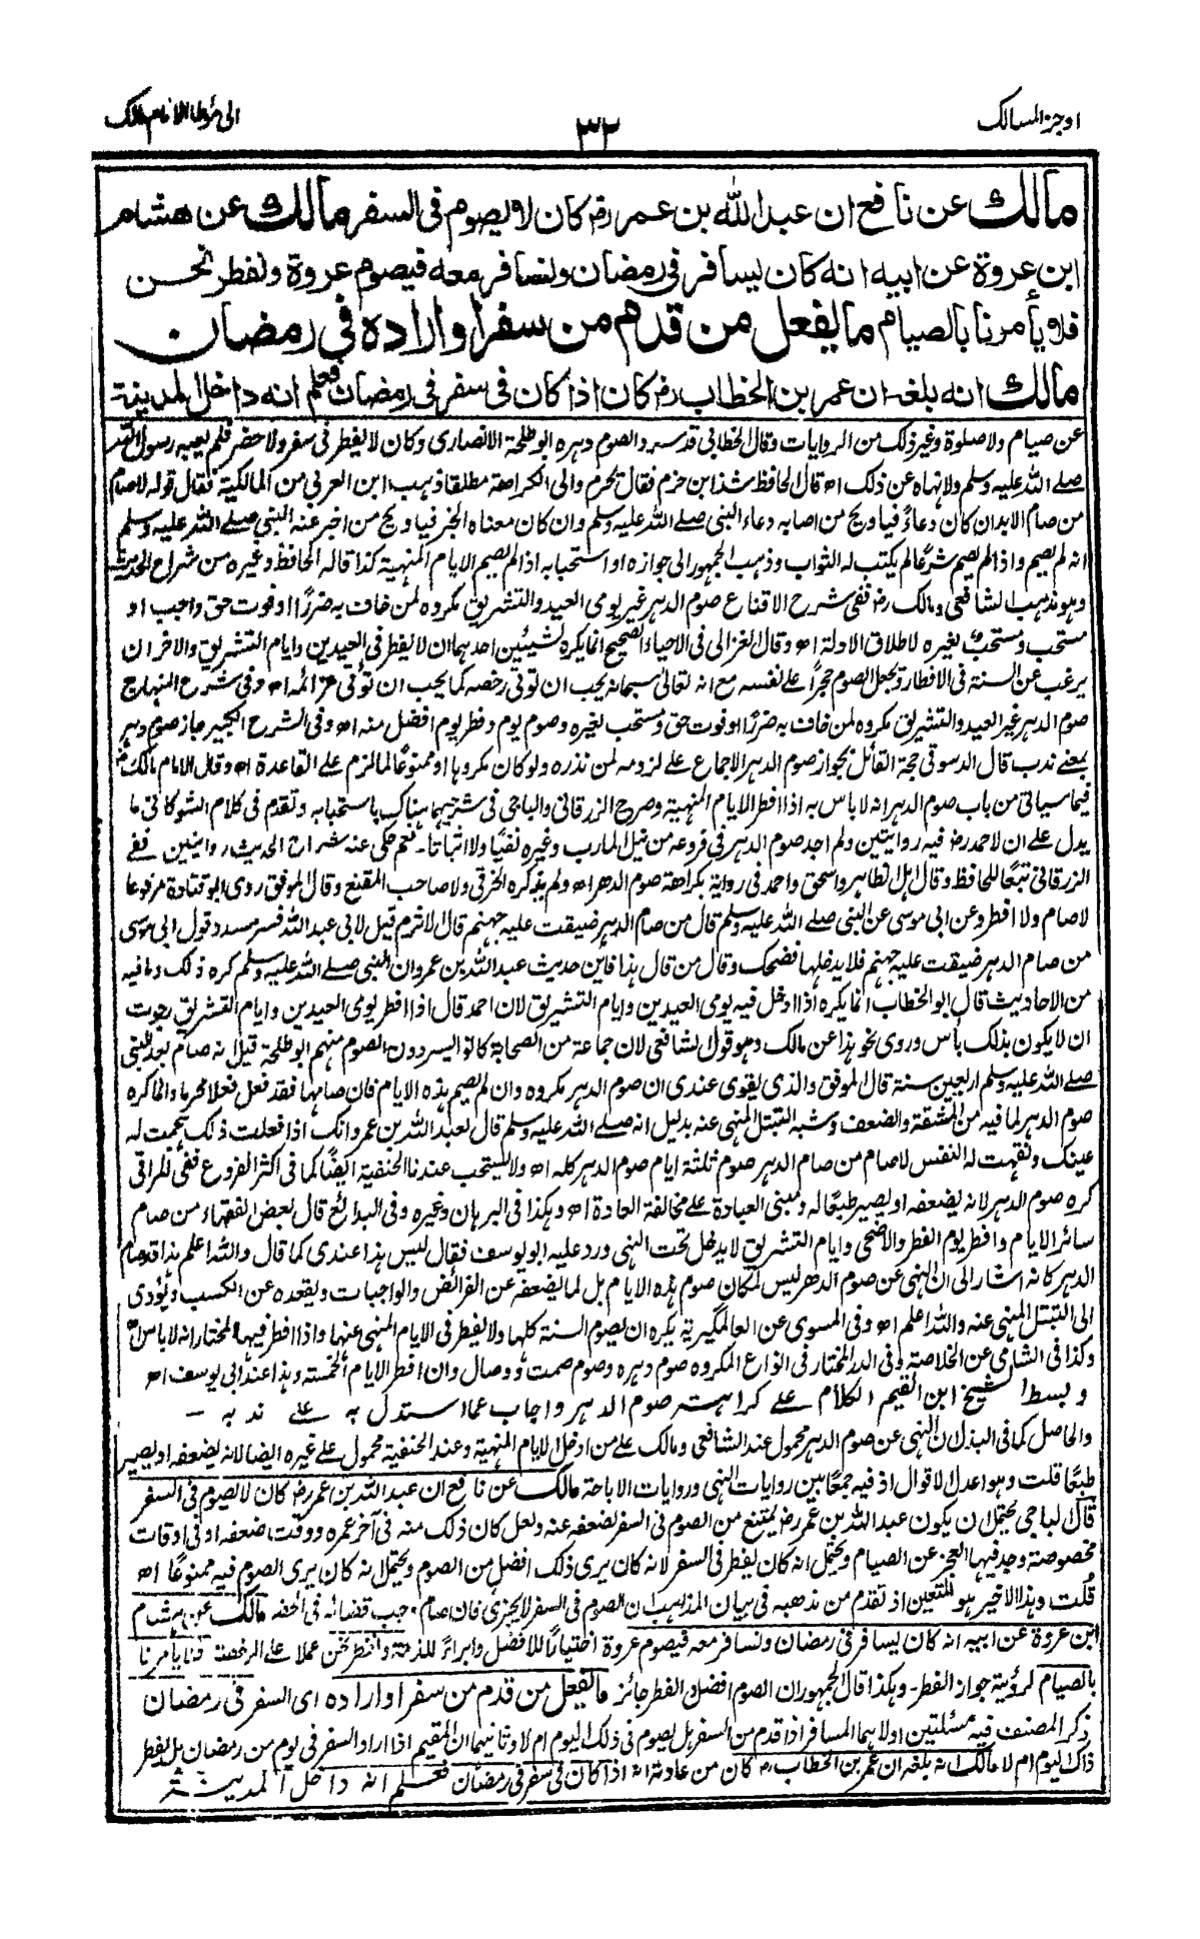 اوجز المسالك
٣٢
الى مؤطا الامام مالك
مالك عن نافع ان عبد الله بن عمر رض كان لا يصوم فى السفر مالك عن هشام
ابن عروة عن ابيه انه كان يسافر فى رمضان ونسافر معه فيصوم عروة ونفطر نحن
فلا يأمرنا بالصيام ما يفعل من قدم من سفر او اراده فى رمضان
مالك انه بلغه ان عمر بن الخطاب رض كان اذا كان فى سفر فى رمضان فعلم انه داخل المدينة
عن صيام ولا صلوة وغير ذلك من الروايات وقال الخطابى قد سرد الصوم دهره ابو طلحة الانصارى وكان لا يفطر فى سفر ولا حضر فلم يعبه رسول الله
صلے الله عليه وسلم ولا نهاه عن ذلك اھ قال الحافظ شذ ابن حزم فقال تحرم والى الكراهة مطلقا ذهب ابن العربى من المالكية فقال قوله لا صام
من صام الابد ان كان دعاءً فيا ويح من اصابه دعاء النبى صلے الله عليه وسلم وان كان معناه الخبر فيا ويح من اخبر عنه النبى صلے الله عليه وسلم
انه لم يصم واذا لم يصم شرعًا لم يكتب له الثواب وذهب الجمهور الى جوازه او استحبابه اذا لم يصم الايام المنهية كذا قاله الحافظ وغيره من شراح الحديث
وهو مذهب الشافعى ومالك رض ففى شرح الاقناع صوم الدهر غير يومى العيد والتشريق مكروه لمن خاف به ضررًا او فوت حق واجب او
مستحب ومستحب لغيره لاطلاق الادلة اھ وقال الغزالى فى الاحياء الصحيح انما يكره لشيئين احدهما ان لا يفطر فى العيدين وايام التشريق والاخر ان
يرغب عن السنة فى الافطار ويجعل الصوم حجرًا علے نفسه مع ان الله تعالى سبحانه يحب ان توتى رخصه كما يحب ان توتى عزائمه اھ وفى شرح المنهاج
صوم الدهر غير العيد والتشريق مكروه لمن خاف به ضررًا او فوت حق ومستحب لغيره وصوم يوم وفطر يوم افضل منه اھ وفى الشرح الكبير جاز صوم دهر
بمعنے ندب قال الدسوقى حجة القائل بجواز صوم الدهر الاجماع علے لزومه لمن نذره ولو كان مكروها او ممنوعًا لما لزم علے القاعدة اھ وقال الامام مالك
فيما سياتى من باب صوم الدهر انه لا باس به اذا افطر الايام المنهية وصرح الزرقانى والباجى فى شرحيهما هناك باستحبابه وتقدم فى كلام الشوكانى ما
يدل علے ان لاحمد رض فيه روايتين ولم اجد صوم الدهر فى فروعه من نيل المارب وغيره نفيًا ولا اثباتا۔ نعم حكى عنه شراح الحديث روايتين ففے
الزرقانى تبعًا للحافظ وقال اهل الظاهر واسحق واحمد فى رواية بكراهة صوم الدهر اھ ولم يذكره الخرقى ولا صاحب المقنع وقال الموفق روى ابو قتادة مرفوعا
لا صام ولا افطر وعن ابى موسى عن النبى صلے الله عليه وسلم قال من صام الدهر ضيقت عليه جهنم قال الاثرم قيل لابى عبد الله فسر مسدد قول ابى موسى
من صام الدهر ضيقت عليه جهنم فلا يدخلها فضحك وقال من قال هذا فاين حديث عبد الله بن عمرو ان النبى صلے الله عليه وسلم كره ذلك وما فيه
من الاحاديث قال ابو الخطاب انما يكره اذا ادخل فيه يومى العيدين وايام التشريق لان احمد قال اذا افطر يومى العيدين وايام التشريق رجوت
ان لا يكون بذلك بأس وروى نحو هذا عن مالك وهو قول الشافعى لان جماعة من الصحابة كانوا يسردون الصوم منهم ابو طلحة قيل انه صام بعد النبى
صلے الله عليه وسلم اربعين سنة قال الموفق والذى يقوى عندى ان صوم الدهر مكروه وان لم يصم هذه الايام فان صامها فقد فعل فعلا محرما وانما كره
صوم الدهر لما فيه من المشقة والضعف وشبه التبتل المنهى عنه بدليل انه صلے الله عليه وسلم قال لعبد الله بن عمرو انك اذا فعلت ذلك هجمت له
عينك ونفهت له النفس لا صام من صام الدهر صوم ثلثة ايام صوم الدهر كله اھ ولا يستحب عندنا الحنفية ايضًا كما فى اكثر الفروع ففى المراقى
كره صوم الدهر لانه يضعفه او يصير طبعًا له ومبنى العبادة علے مخالفة العادة اھ وهكذا فى البرهان وغيره وفى البدائع قال بعض الفقهاء من صام
سائر الايام وافطر يوم الفطر والاضحى وايام التشريق لا يدخل تحت النهى ورد عليه ابو يوسف فقال ليس هذا عندى كما قال والله اعلم هذا قد صام
الدهر كانه اشار الى ان النهى عن صوم الدهر ليس لمكان صوم هذه الايام بل لما يضعفه عن الفرائض والواجبات ويقعده عن الكسب ويؤدى
الى التبتل المنهى عنه والله اعلم اھ وفى المسوى عن العالمگيرية يكره ان يصوم السنة كلها ولا يفطر فى الايام المنهى عنها واذا افطر فيها المختار انه لا باس اھ
وكذا فى الشامى عن الخلاصة وفى الدر المختار فى انواع المكروه صوم دهره وصوم صمت ووصال وان افطر الايام الخمسة وهذا عند ابى يوسف اھ
وبسط الشيخ ابن القيم الكلام علے كراهته صوم الدهر واجاب عما استدل به علے ندبه ۔
والحاصل كما فى البذل ان النهى عن صوم الدهر محمول عند الشافعى ومالك علے من ادخل الايام المنهية وعند الحنفية محمول علے غيره ايضا لانه يضعفه او يصير
طبعًا قلت وهو اعدل الاقوال اذ فيه جمعًا بين روايات النهى وروايات الاباحة مالك عن نافع ان عبد الله بن عمر رض كان لا يصوم فى السفر
قال الباجى يحتمل ان يكون عبد الله بن عمر رض يمتنع من الصوم فى السفر لضعفه عنه ولعل كان ذلك منه فى آخر عمره ووقت ضعفه او فى اوقات
مخصوصة وجد فيها العجز عن الصيام ويحتمل انه كان يفطر فى السفر لانه كان يرى ذلك افضل من الصوم ويحتمل انه كان يرى الصوم فيه ممنوعًا اھ
قلت وهذا الاخير هو المتعين اذ تقدم من مذهبه فى بيان المذاهب ان الصوم فى السفر لا يجزى فان صام وجب قضائه فى الحضر مالك عن هشام
ابن عروة عن ابيه انه كان يسافر فى رمضان ونسافر معه فيصوم عروة اختيارًا للافضل وابراءً للذمة ونفطر نحن عملا علے الرخصة فلا يأمرنا
بالصيام لرؤية جواز الفطر۔ وهكذا قال الجمهور ان الصوم افضل والفطر جائز ما يفعل من قدم من سفر او اراده اى السفر فى رمضان
ذكر المصنف فيه مسئلتين اولاهما المسافر اذا قدم من السفر هل يصوم فى ذلك اليوم ام لا وثانيهما ان المقيم اذا اراد السفر فى يوم من رمضان هل يفطر
ذاك اليوم ام لا مالك انه بلغه ان عمر بن الخطاب رض كان من عادته انه اذا كان فى سفر فى رمضان فعلم انه داخل المدينة